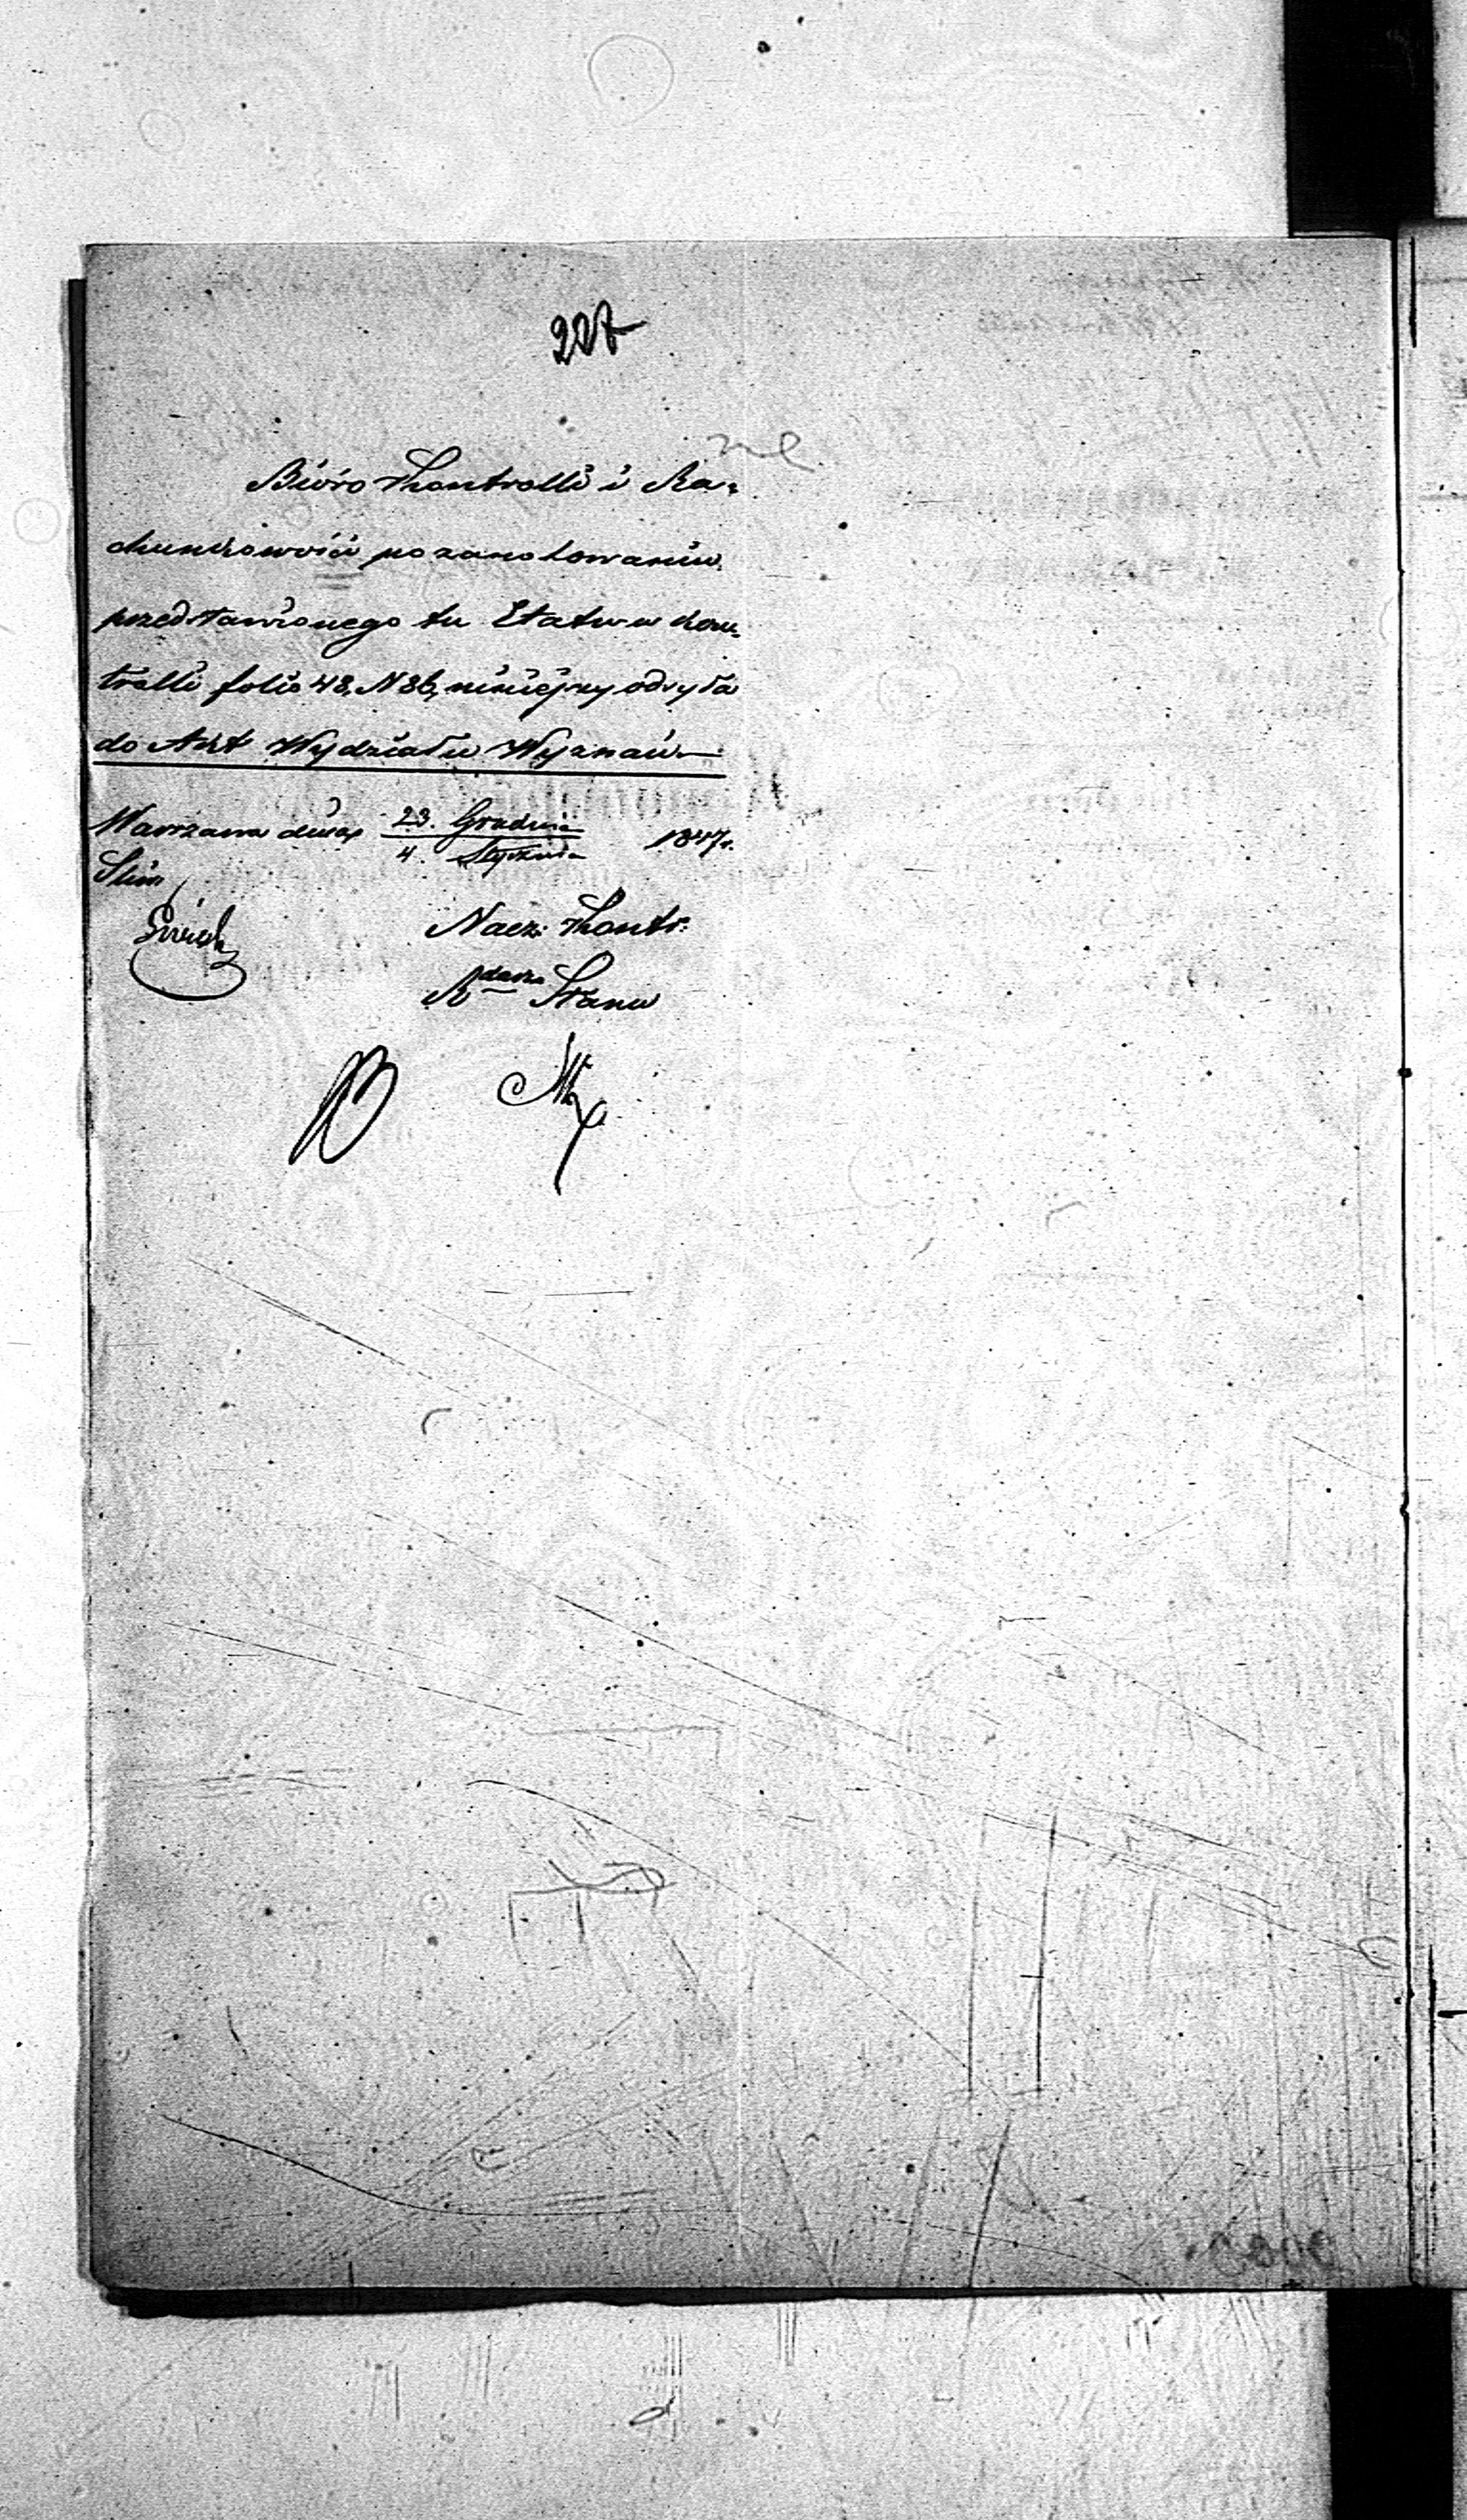 227
Bióro Kontrolli i Ra=
chunkowości po zanotowaniu
przedstawionego tu Etatu w kon=
trolli folio 48, N 86, niniejszy odsyła
do Akt Wydziału Wyznań
Warszawa dnia 23. Grudnia / 4. Stycznia 1847 r.
Nacz: Kontr:
Rdca Stanu